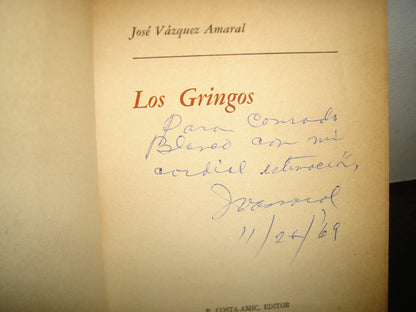 José Vázquez Amaral
Los Gringos
Para Conrado
Blanco con mi
cordial estimación,
11/26/69
B. COSTA-AMIC, EDITOR